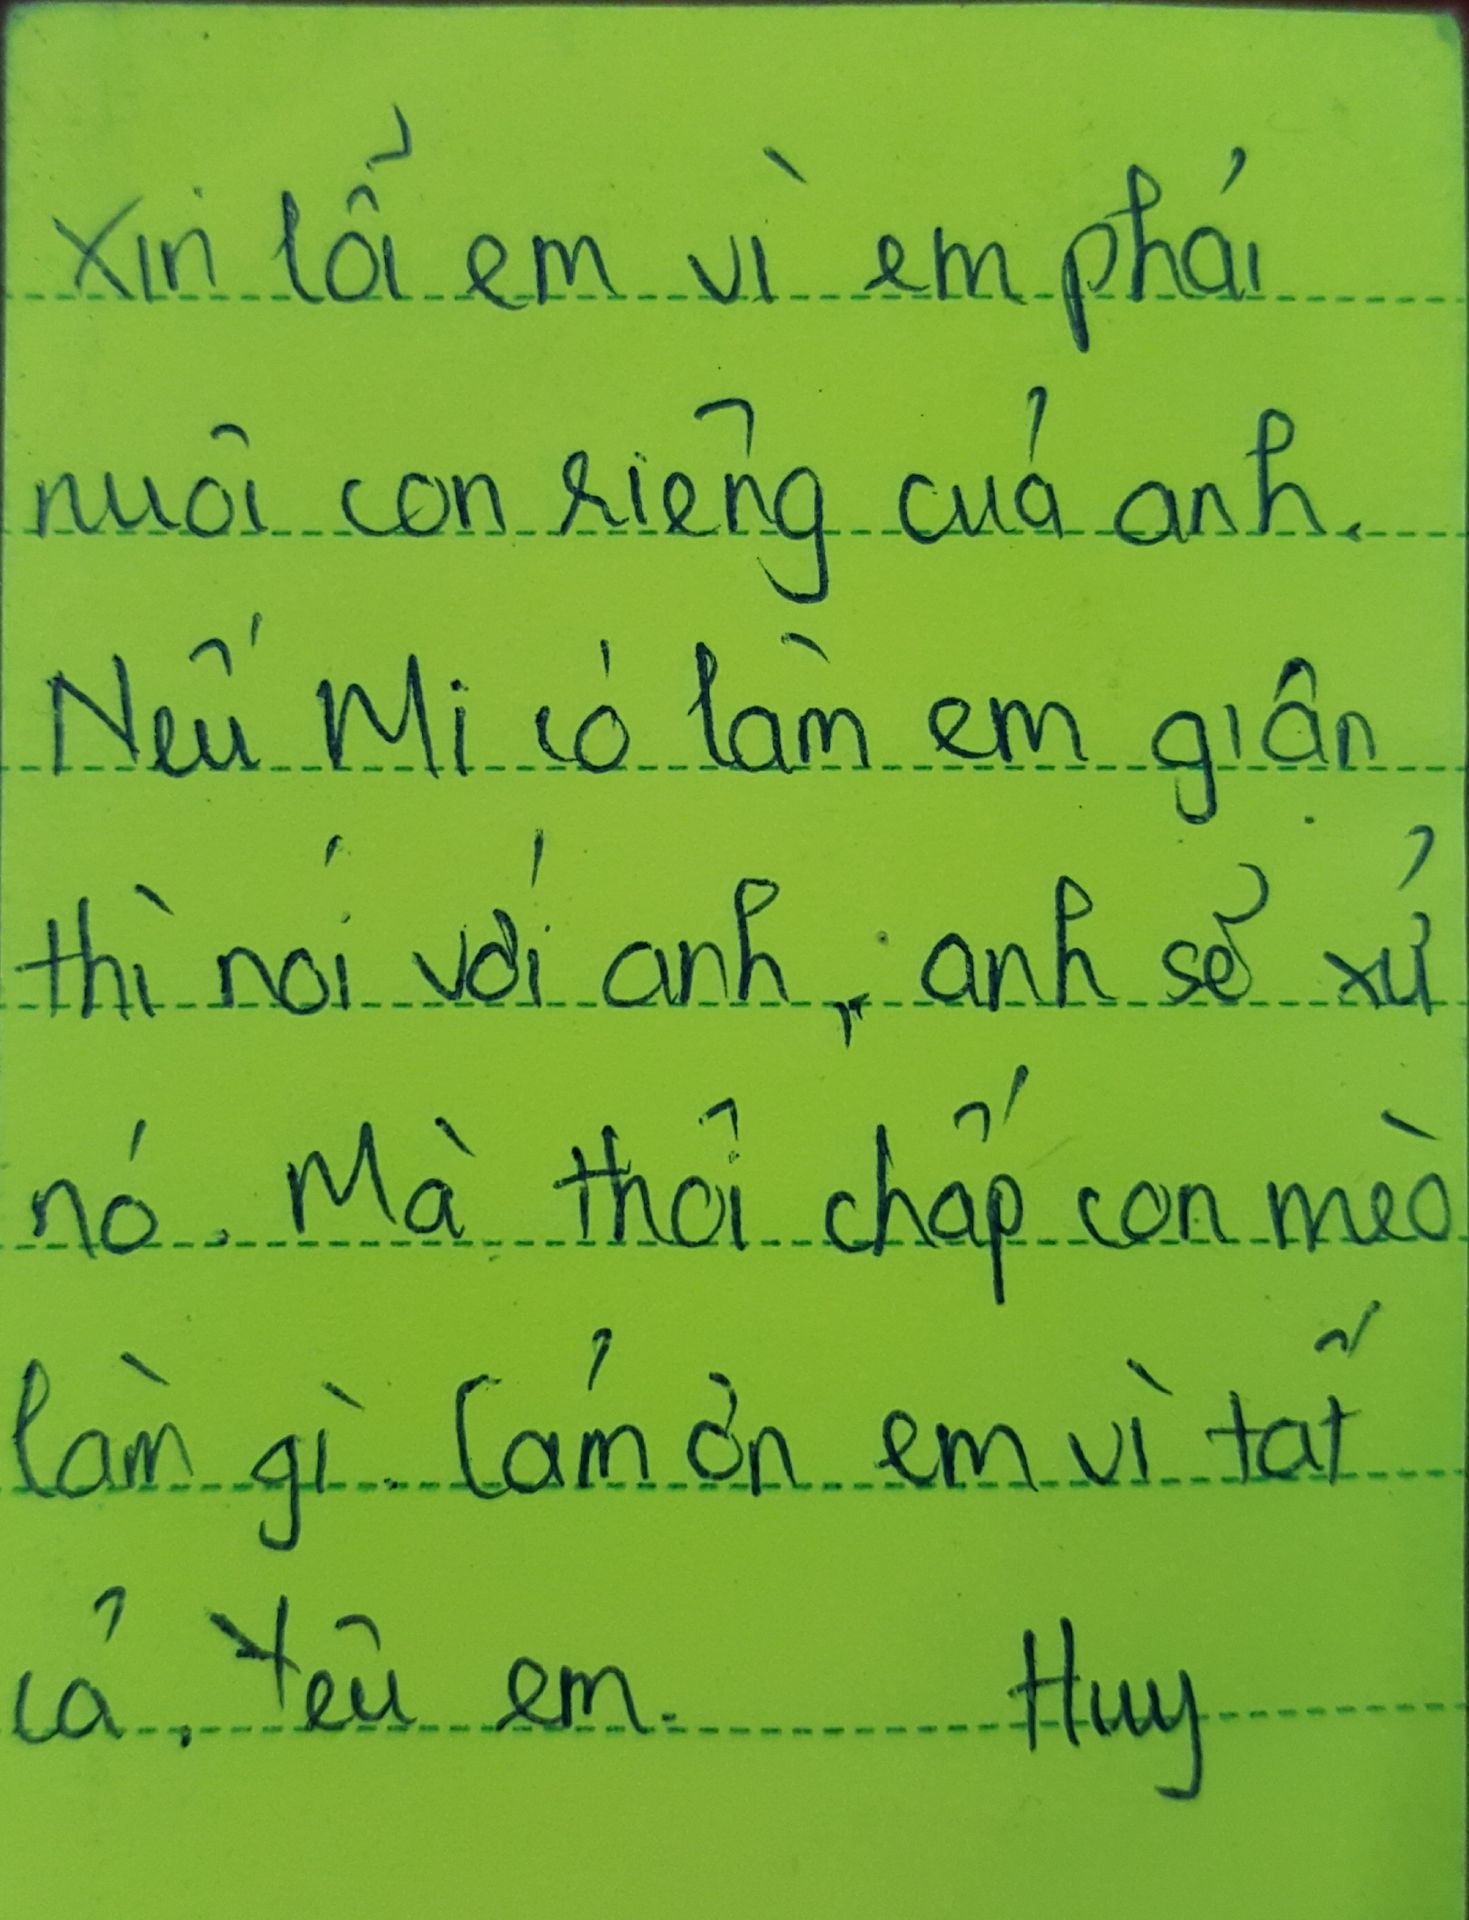 Xin lổi em vì em phải
nuôi con riêng của anh.
Nếu Mi có làm em giận
thì nói với anh, anh sẻ xử
nó. Mà thôi chấp con mèo
làm gì. Cảm ơn em vì tất
cả. Yêu em. Huy